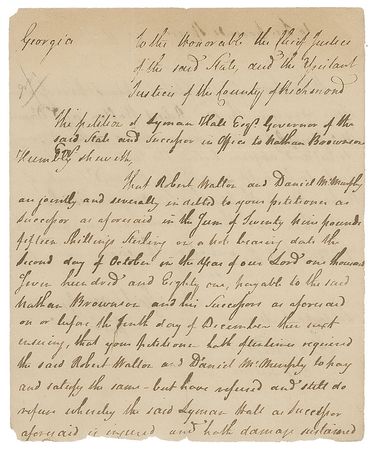 Georgia
To the Honorable the Chief Justice
of the said State, and the Assistant
Justices of the County of Richmond
The petition of Lyman Hall Esqr. Governor of the
said State and Successor in Office to Nathan Brownson
Esqr
Humbly sheweth,
That Robert Walton and Daniel McMurphy
are jointly and severally indebted to your petitioner as
Successor as aforesaid in the Sum of Seventy Nine pounds
fifteen Shillings Sterling on a note bearing date the
Second day of October in the Year of our Lord one thousand
Seven hundred and Eighty one, payable to the said
Nathan Brownson and his Successors as aforesaid
on or before the Tenth day of December then next
ensuing, that your petitioner hath oftentimes required
the said Robert Walton and Daniel McMurphy to pay
and satisfy the same - but have refused and still do
refuse whereby the said Lyman Hall as Successor
aforesaid is injured and hath damage sustained